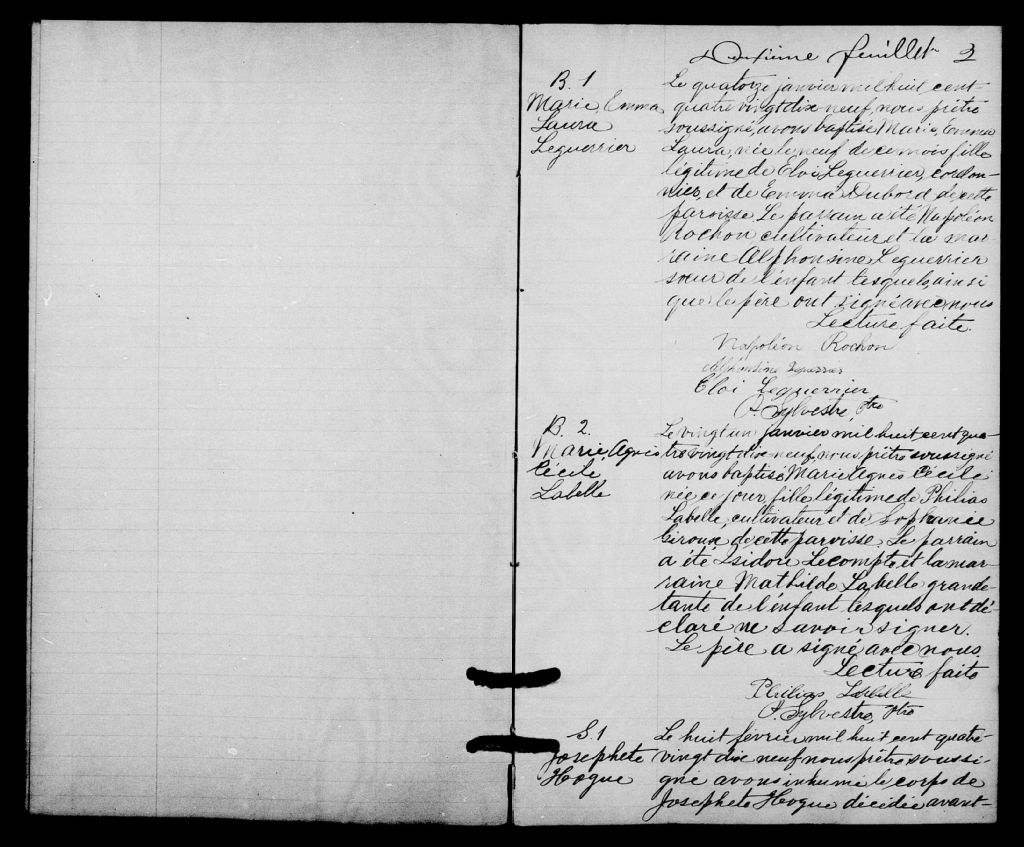 Deuxième feuillet 2
B. 1
Marie Emma
Laura
Leguerrier
Le quatorze janvier mil huit cent-
quatre vingt dix-neuf, nous prêtre
soussigné, avons baptisé Marie, Emma
Laura, née le neuf de ce mois fille
légitime de Eloi Leguerrier, cordon-
nier, et de Emma Dubord de cette
paroisse. Le parrain a été Napoléon
Rochon cultivateur et la mar-
raine Alphonsine Leguerrier
sœur de l'enfant lesquels, ainsi
que le père ont signé avec nous
Lecture faite.
Napoléon Rochon
Alphonsine
Eloi Leguerrier
P. Sylvestre, Ptre
B. 2.
Marie, Agnès
Cécile
Labelle
Le vingt un janvier mil huit cent qua-
tre vingt dix neuf, nous prêtre soussigné
avons baptisé Marie Agnès Cécile
née ce jour, fille légitime de Philias
Labelle, cultivateur et de Sophranie
Giroux de cette paroisse. Le parrain
a été Isidore Lecompte, et la mar-
raine Mathilde Labelle grande-
tante de l'enfant lesquels ont dé-
claré ne savoir signer.
Le père a signé avec nous.
Lecture faite
Philias Labelle
P. Sylvestre, Ptre
S. 1
Josephete
Hogue
Le huit fevrier mil huit cent quatre-
vingt dix neuf nous prêtre soussi-
gné avons inhumé le corps de
Josephete Hogue décédée avant-